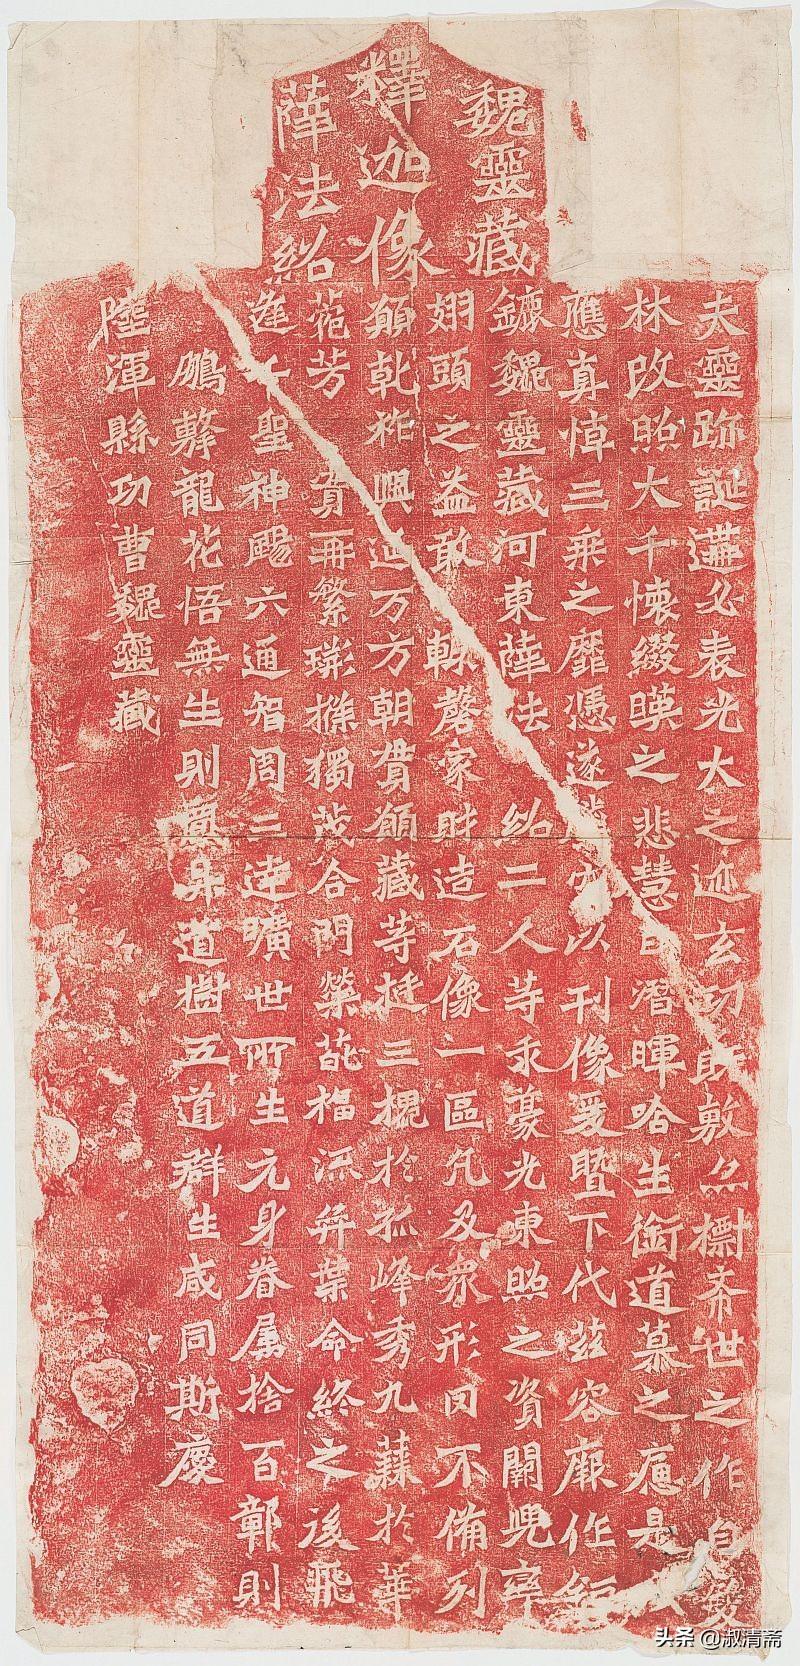 魏靈藏
釋迦像
薛法紹
夫靈跡誕遘必表光大之迹玄功既敷亦摽希世之作自雙
林改照大千懷綴暎之悲慧日潛暉哈生銜道慕之痛是
應真悼三乘之靡憑遂空以刊像爰暨下代茲容厥作鉅
鏕魏靈藏河東薛法紹二人等求豪光東照之資闕兜率
翅頭之益敢輒磬家財造石像一區凡及眾形罔不備列
願乾祚興延万方朝貫願藏等挺三槐於孤峰秀九蕀於華
菀芳實再繁瑯條獨茂合門榮葩福流弈葉命終之後飛
逢千聖神颺六通智周三達曠世所生元身眷屬捨百鄣則
鵬擊龍花悟無生則昇道樹五道群生咸同斯慶
陸渾縣功曹魏靈藏
头条 @淑清斋